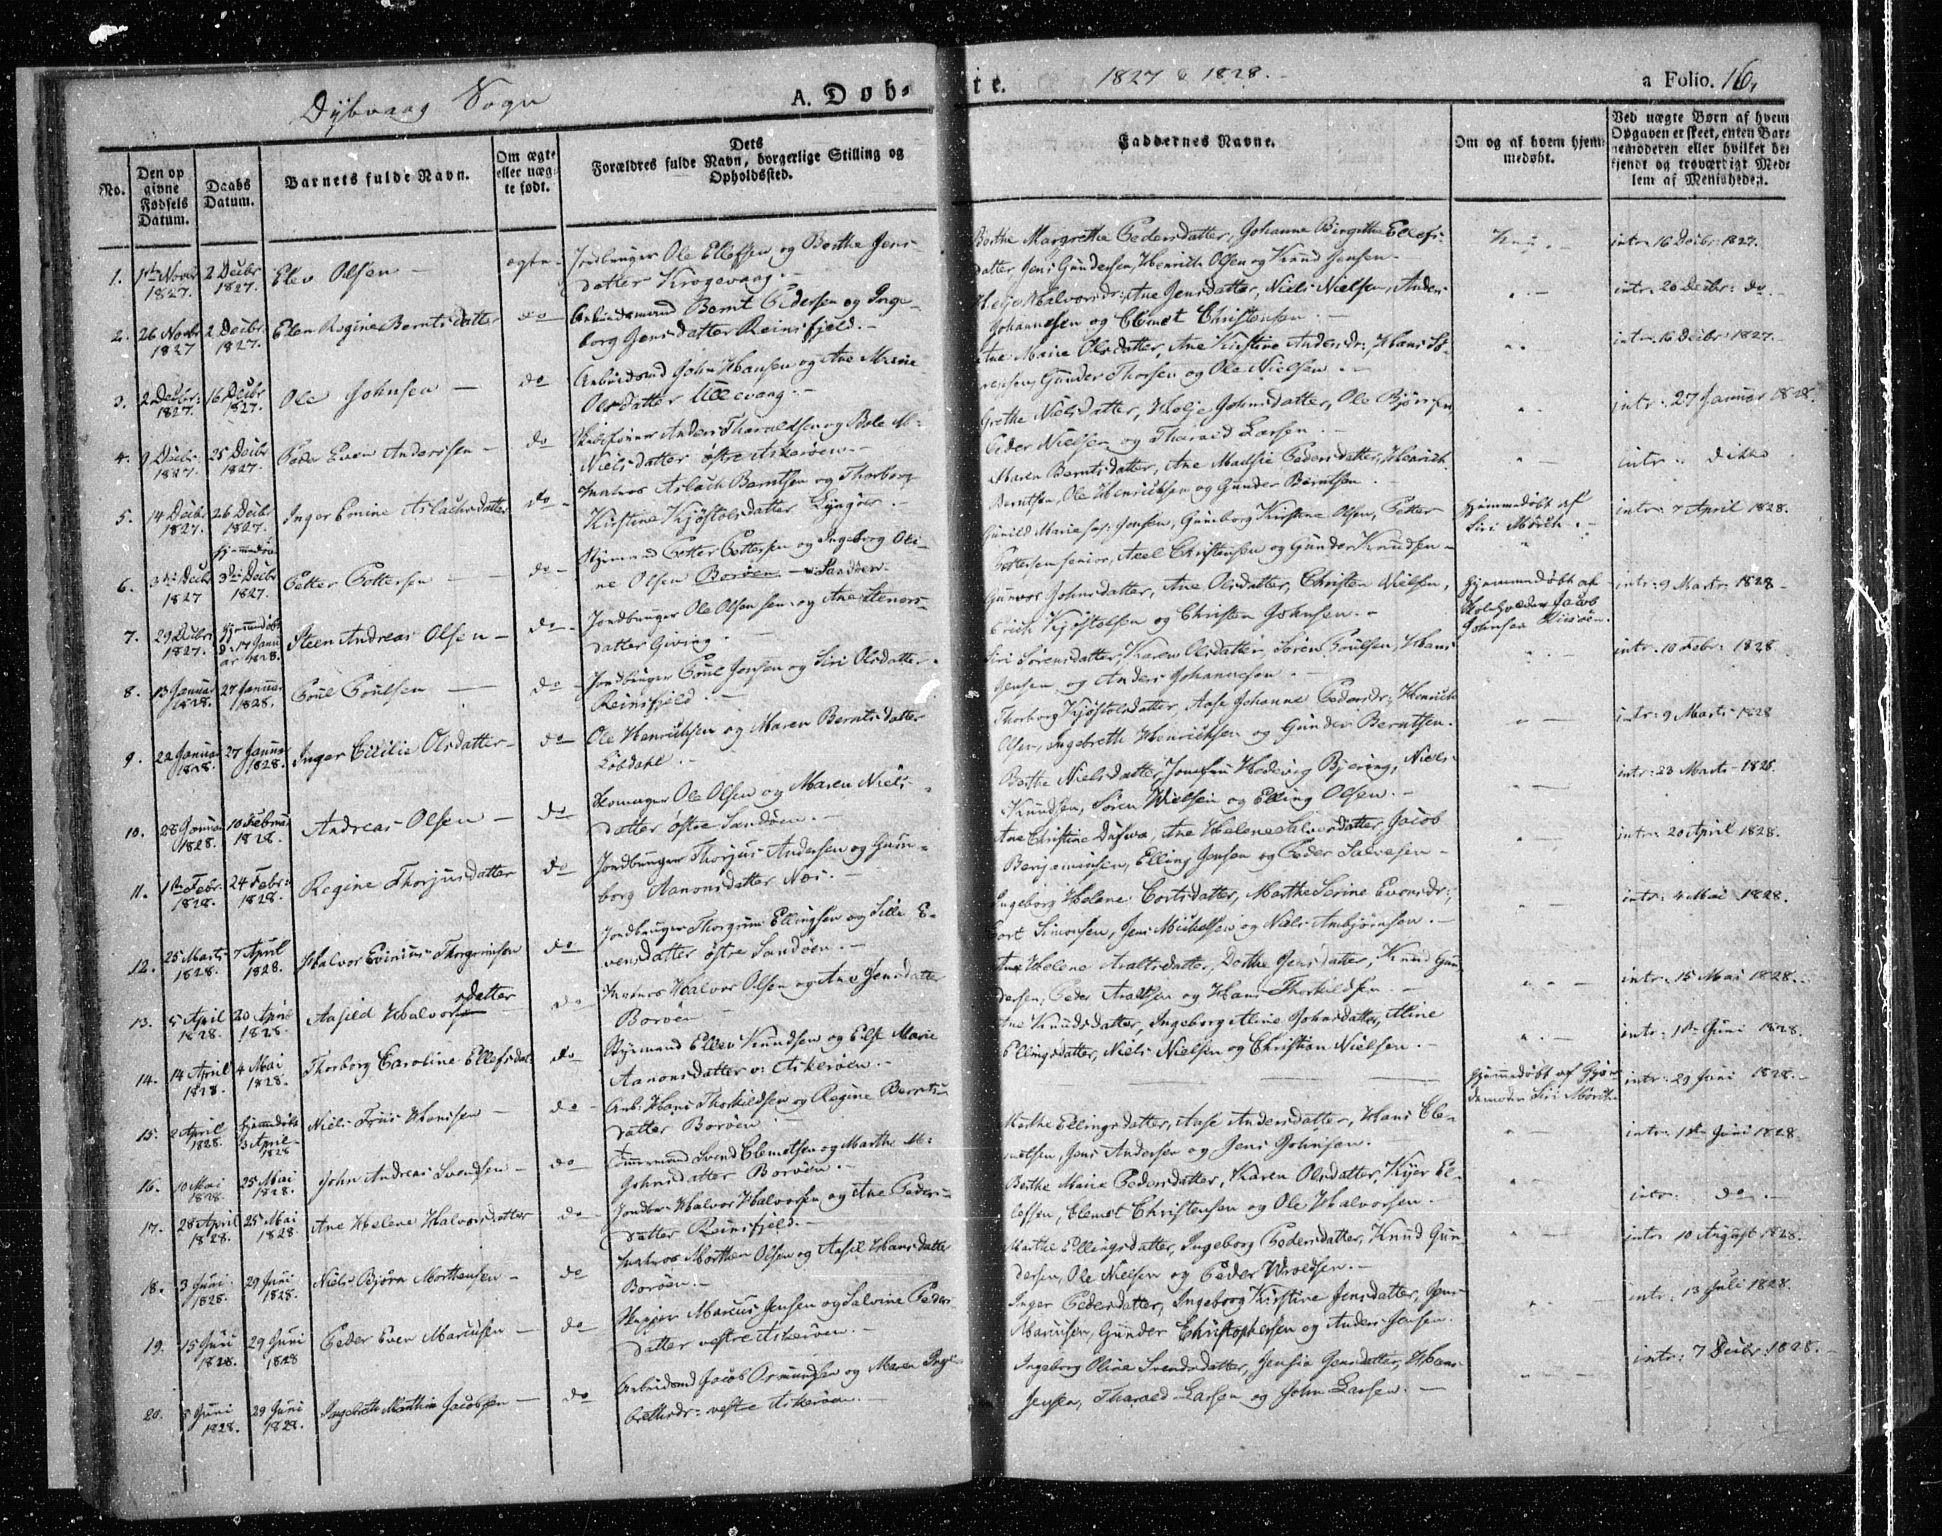 Dybvaag Sogn
A. Døb-
te.
1827 & 1828.
a Folio. 16,
No.
Den op
givne
Fødsels
Datum.
Daabs
Datum.
Barnets fulde Navn.
Om ægte
eller uæg-
te født.
Dets
Forældres fulde Navn, borgerlige Stilling og
Opholdssted.
Faddernes Navne.
Om og af hvem hjem-
medøbt.
Ved uægte Børn af hvem
Opgaven er skeet, enten Bar-
nemoderen eller hvilket be-
kjendt og troværdigt Med-
lem af Menigheden.
1. 1ste Novbr 1827. 2 Decbr 1827. Elev Olsen – ægte – Jordbruger Ole Ellefsen og Berthe Jens-
datter Krogevaag. –
Berthe Margrethe Pedersdatter, Johanne Birgithe Ellefs-
datter, Jens Gundersen, Henrich Olsen og Knud Jensen –
intr: 16 Decbr: 1827.
2. 26 Novbr 1827 2 Decbr 1827. Elen Regine Berntsdatter do Arbeidsmand Bernt Pedersen og Inge-
borg Jensdatter Reinsfjeld. –
Helje Halvorsdr:, Ane Jensdatter, Niels Nielsen, Anders
Johannesen og Clemet Christensen. –
intr: 26 Decbr: do –
3. 2 Decbr: 1827. 16 Decbr 1827. Ole Johnsen – do Arbeidsmd John Hansen og Ane Marie
Olsdatter Ullevang. –
Ane Marie Olsdatter, Ane Kirstine Andersdr:, Hans Sø-
rensen, Gunder Thorsen og Ole Nielsen –
intr: 16 Decbr 1827.
4. 9 Decbr: 1827. 25 Decbr 1827. Peder Even Andersen – do Anders Tharaldsen og Bole M:
Nielsdatter østre Askerøen –
Grethe Nielsdatter, Helje Johnsdatter, Ole Bjørnsen,
Peder Nielsen og Tharald Larsen. –
intr: 27 Januar 1828.
5. 14 Decbr 1827. 26 Decbr 1827. Inger Emine Aslachsdatter do – Matros Aslach Berntsen og Thorborg
Kirstine Kjøstolsdatter Lyngøer. –
Maren Berntsdatter, Ane Madsie Pedersdatter, Henrich
Berntsen, Ole Henrichsen og Gunder Berntsen. –
intr: dito
6. 3die Decbr 1827 hjemmedøbt 3die Decbr 1827. Petter Pettersen – do – Styrmand Petter Pettersen og Ingeborg Oli-
ne Olsen Borøen – Sandøen
Gunild Marie Jonsen, Gunborg Kirstine Olsen, Petter
Pettersen senior, Axel Christensen og Gunder Knudsen –
hjemmedøbt af
Siri Mørch –
intr: 7 April 1828.
7. 29 Decbr: 1827. hjemmedøbt d: 17 Janu-
ar 1828. Steen Andreas Olsen – do – Jordbruger Ole Olsen sen: og Ane Steners-
datter Giving. –
Gunvor Johnsdatter, Ane Olsdatter, Christen Nielsen,
Erich Kjøstolsen og Christen Johnsen. –
hjemmedøbt af
Skoleholder Jacob
Johnsen
intr: 9 Marts 1828 –
8. 13 Januar 1828. 27 Januar 1828. Poul Poulsen – do – Jordbruger Poul Jensen og Siri Olsdatter
Reinsfjeld –
Siri Sørensdatter, Karen Olsdatter, Søren Poulsen, Hans
Jensen og Anders Johannesen –
intr: 10 Febr: 1828
9. 22 Januar 1828. 27 Januar 1828. Inger Cicilie Olsdatter – do – Ole Henrichsen og Maren Berntsdatter
Løbdahl. –
Thorborg Kjøstolsdatter, Aase Johanne Pedersdr:, Henrich
Olsen, Ingebreth Henrichsen og Gunder Berntsen.
intr: 9 Marts 1828
10. 28 Januar 1828. 10 Februar 1828. Andreas Olsen – do Ole Olsen og Maren Niels-
datter østre Sandøen. –
Berthe Nielsdatter, Hedevig Bjering, Niels
Knudsen, Søren Nielsen og Elling Olsen. –
intr: 23 Marts – 1828.
11. 1ste Febr. 1828. 24 Febr: 1828. Regine Thorjusdatter do Jordbruger Thorjus Andersen og Gun-
borg Aanonsdatter Næs. –
Ane Christine Ane Helene Jacob
Benjaminsen, Elling Jensen og Peder Salvesen –
intr: 20 April 1828.
12. 25 Marts 1828. 7 April 1828. Halvor Evinius Thorgrimsen do – Jordbruger Thorgrim Ellingsen og Sille E-
vensdatter østre Sandøen. –
Ingeborg Helene Cortsdatter, Marthe Serine Evensdr:,
Cort Simonsen, Jens Michelsen og Niels Anbjørnsen. –
intr: 4 Mai 1828.
13. 5 April 1828. 20 April 1828. Aasild Halvorsdatter do Matros Halvor Olsen og Ane Jensdatter
Borøen –
Ane Helene Araltsdatter, Dorthe Jensdatter, Knud Gun-
dersen, Peder Araltsen og Hans Thorkildsen. –
intr: 15 Mai 1828. –
14. 14 April 1828. 4 Mai 1828. Thorborg Caroline Ellefsdat: do Styrmand Ellev Knudsen og Else Marie
Aanonsdatter v: Askerøen. –
Ane Knudsdatter, Ingeborg Aline Johnsdatter, Aline
Ellingsdatter, Niels Nielsen og Christian Nielsen. –
intr: 1ste Juni 1828.
15. 2 April 1828. hjemmedøbt 3 April 1828 Niels Friis Hansen – do – Arb: Hans Thorkildsen og Regine Bernts-
datter Borøen –
hjemmedøbt af Gjor-
demoder Siri Mørch
intr: 29 Juni 1828. –
16. 10 Mai 1828. 25 Mai 1828. John Andreas Svendsen – do – Tømmermand Svend Clemetsen og Marthe M:
Johnsdatter Borøen. –
Marthe Ellingsdatter, Aase Andersdatter, Hans Cle-
metsen, Jens Andersen og Jens Johnsen. –
intr: 1ste Juni 1828.
17. 28 April 1828. 25 Mai 1828. Ane Helene Halvorsdatter do – Jordbr: Halvor Halvorsen og Ane Peders-
datter Reinsfjeld. –
Berthe Marie Pedersdatter, Karen Olsdatter, Kyer El-
lefsen, Clemet Christensen og Ole Halvorsen.
intr: do –
18. 3 Juni 1828. 29 Juni 1828. Niels Bjørn Morthensen – do Matros Morthen Olsen og Aasil Hansdatter
Borøen. –
Marthe Ellingsdatter, Ingeborg Pedersdatter, Knud Gun-
dersen, Ole Nielsen og Peder Wroldsen. –
intr: 10 August 1828.
19. 15 Juni 1828. 29 Juni 1828 Peder Even Marcusen – do Skipper Marcus Jensen og Salvine Peders-
datter vestre Askerøen. –
Inger Pedersdatter, Ingeborg Kirstine Jensdatter, Jens
Marcusen, Gunder Christophersen og Anders Jensen.
intr: 13 Juli 1828.
20. 8 Juni 1828. 29 Juni 1828. Ingebreth Mathias Jacobsen – do Arbeidsmd Jacob Osmundsen og Maren Inge-
brethsdr: vestre Askerøen. –
Ingeborg Oline Svendsdatter, Jensie Jensdatter, Hans
Jensen, Tharald Larsen og John Larsen. –
intr: 7 Decbr: 1828. –